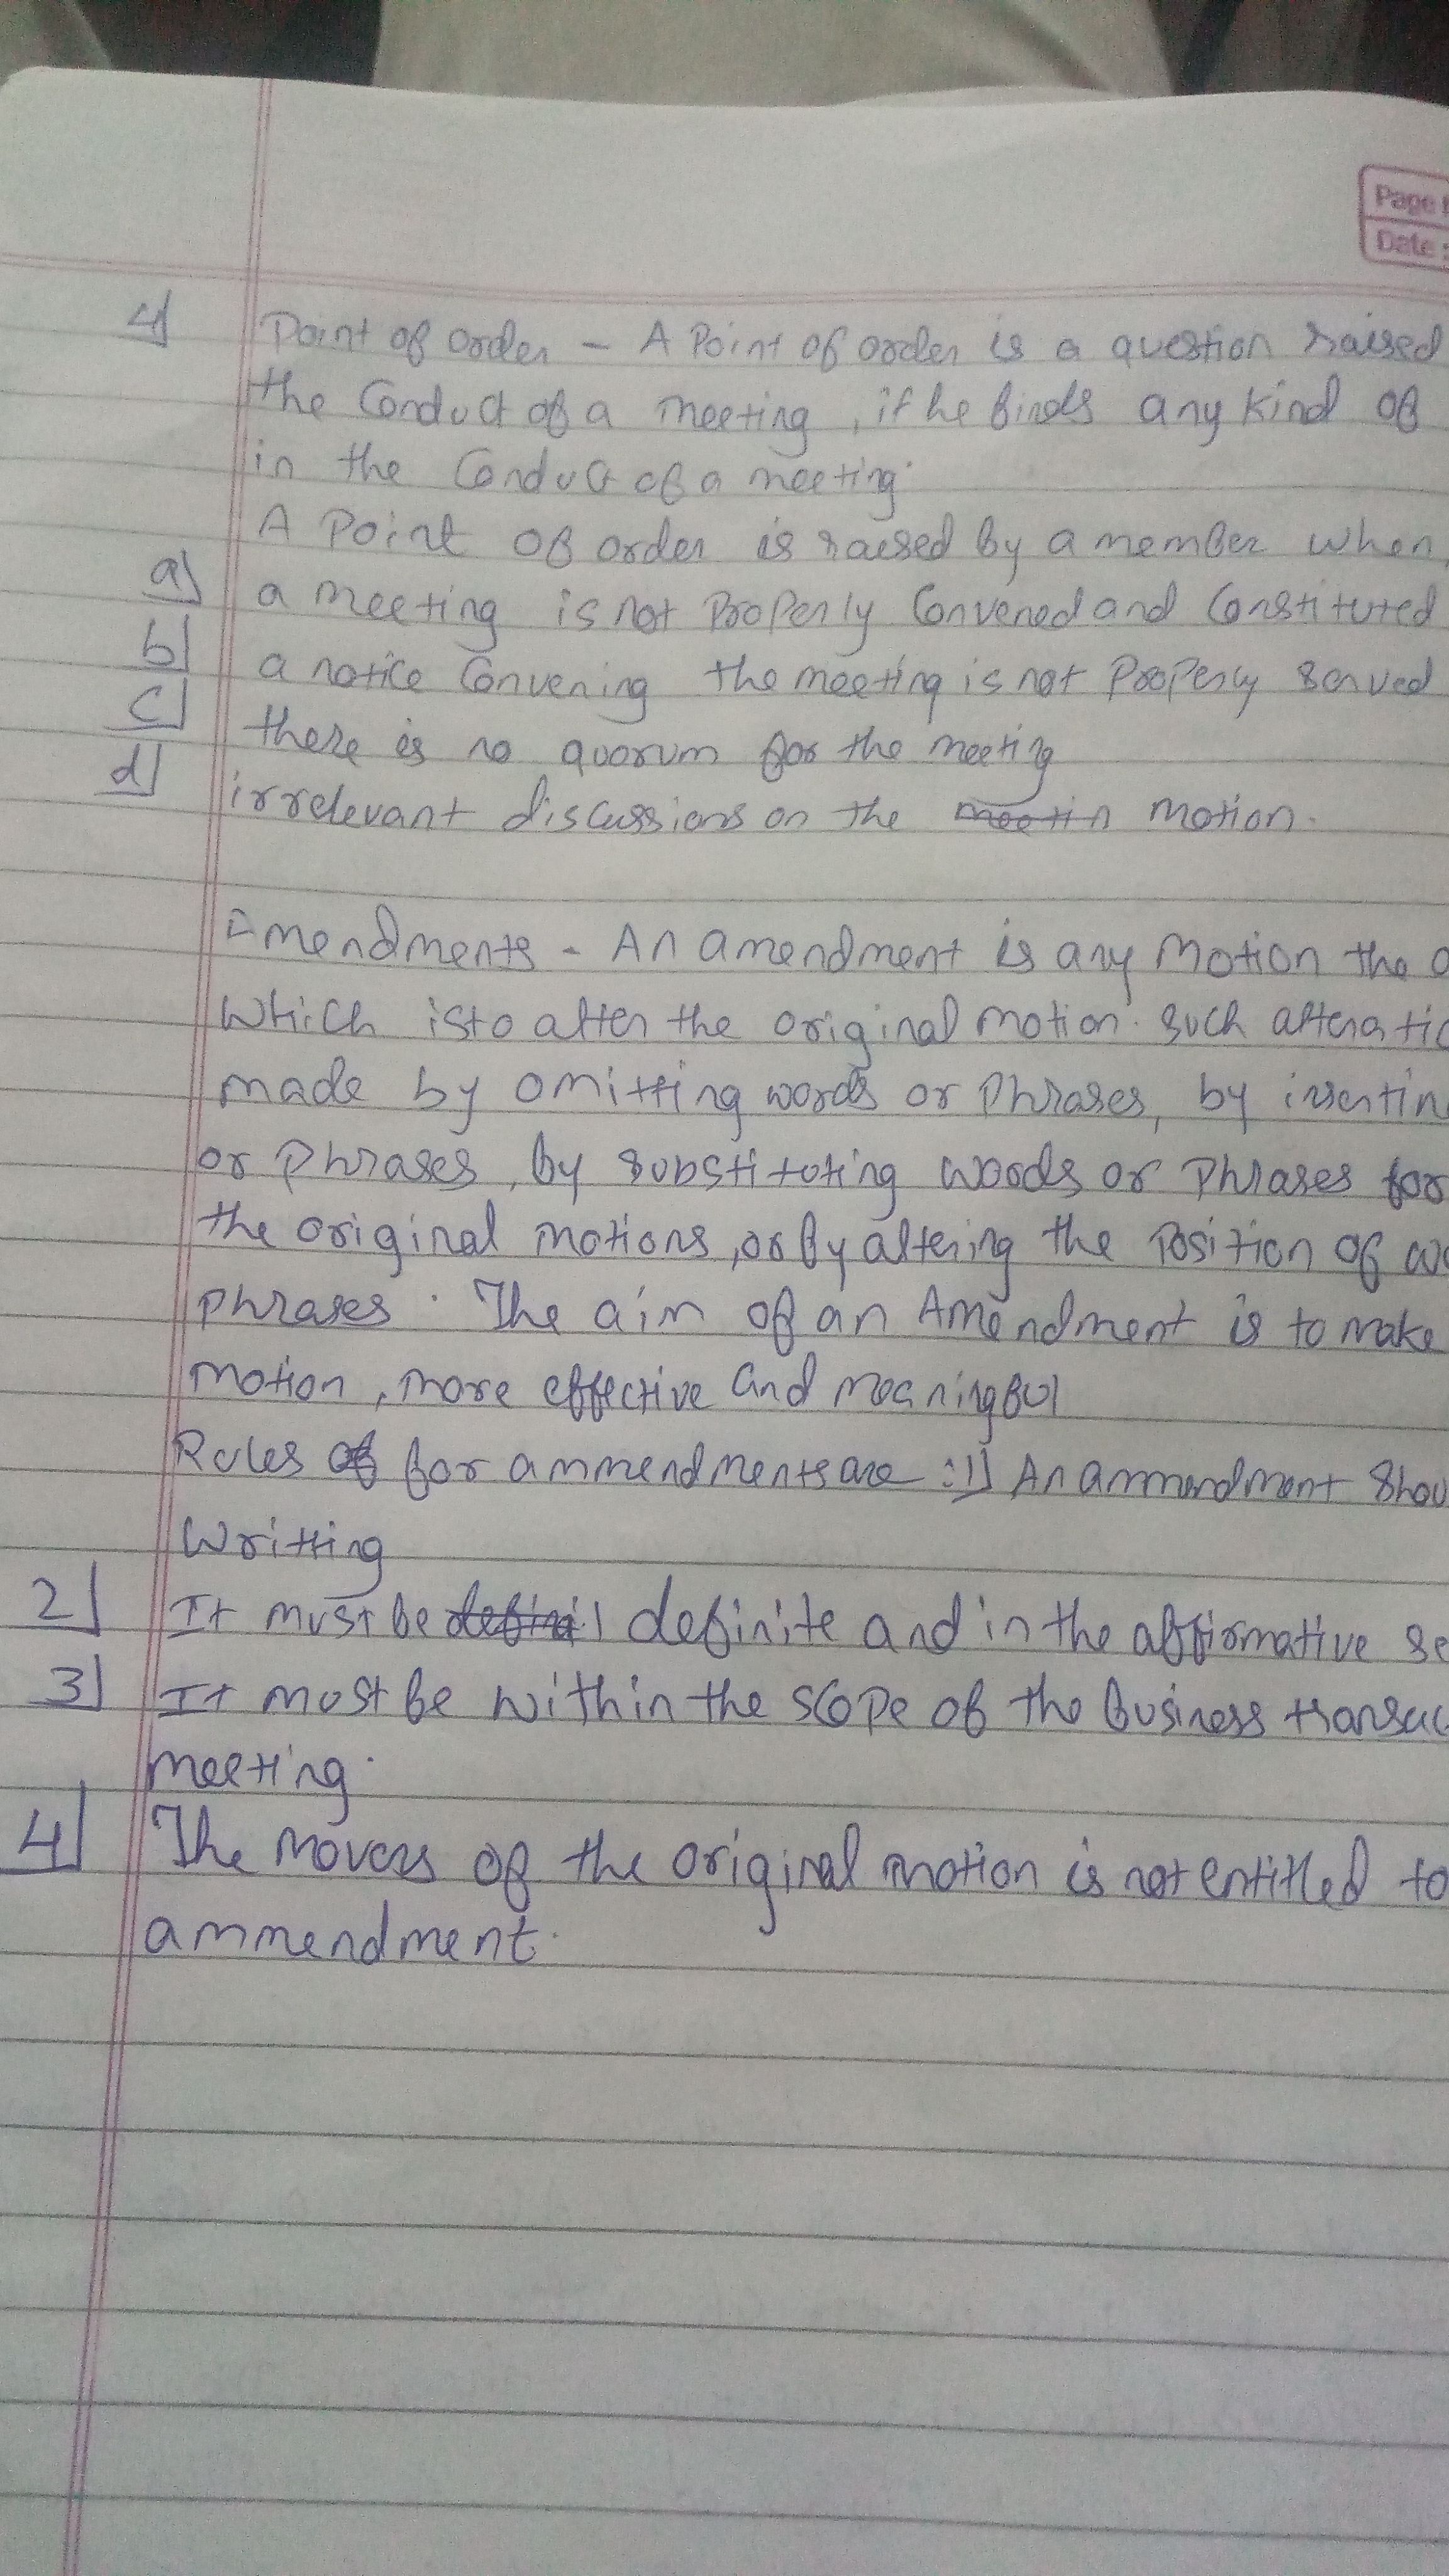 Page
Date :
4) Point of order - A Point of order is a question raised
the Conduct of a meeting, if he finds any kind of
in the Conduct of a meeting.
A Point of order is raised by a member when,
a) a meeting is not Properly Convened and Constituted
b) a notice Convening the meeting is not Properly Served
c) there is no quorum for the meeting
d) irrelevant discussions on the meetin motion.
Amendments - An amendment is any Motion the
Which is to alter the original motion. Such
made by omitting words or Phrases, by
or Phrases, by substituting words or Phrases for
the original motions, or by altering the Position of
Phrases. The aim of an Amendment is to make
motion, more effective and meaningful
Rules of for ammendments are :1) An ammendment
Writting
2) It must be definite and in the affirmative
3) It must be within the scope of the business
meeting.
4) The movers of the original motion is not entitled to
ammendment.